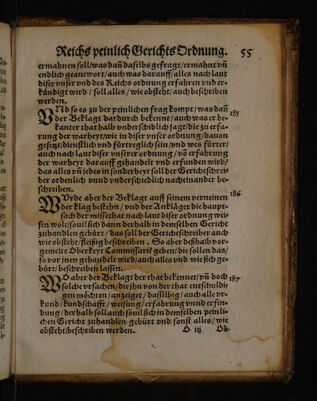 Reichs peinlich Gerichts Ordnung. 55
ermahnen soll/was dañ daselbs gefragt/ermahnt vñ
endlich geantwort/auch was darauff/alles nach laut
diser vnser vnd des Reichs ordnung erfahren vnd er-
kündigt wird/soll alles/wie obsteht/auch beschriben
werden.
VNd so es zu der peinlichen frag kompt/was dañ 185
der Beklagt dardurch bekennt/auch was er be-
kanter that halb vnderschidlich sagt/die zu erfa-
rung der warheyt/wie in diser vnser ordnung/dauon
gesezt/dienstlich vnd fürtreglich sein/vnd wes fürter/
auch nach laut diser vnserer ordnung/vñ erfahrung
der warheyt darauff gehandelt vnd erfunden wird/
das alles vñ jedes in sonderheyt soll der Gerichtschrei-
ber ordenlich vnnd vnderschidlich nacheinander be-
schreiben.
WVrde aber der Beklagt auff seinem verneinen 186
der klag bestehen/vnd der Ankläger die haupt-
sach der missethat nach laut diser ordnung wei-
sen wolt/soul sich dann derhalb in demselben Gericht
zuhandlen gebürt/das soll der Gerichtschreiber auch
wie obsteht/fleissig beschreiben. So aber deßhalb vor-
gemelte Oberkeyt Commissarij geben/die sollen das/
so vor jnen gehandelt wird/auch alles vnd wie sich ge-
bürt/beschreiben lassen.
WO aber der Beklagt der that bekennet/vñ doch 187
solche vrsachen/die jhn von der that entschuldi-
gen möchten/anzeiget/dasselbig/auch alle vr-
kund/kundtschafft/weisung/erfahrung vnnd erfin-
dung/derhalb soll auch soul sich in demselben peinli-
chen Gericht zuhandlen gebürt vnd sonst alles/wie
obsteht/beschriben werden. O iij Ob-